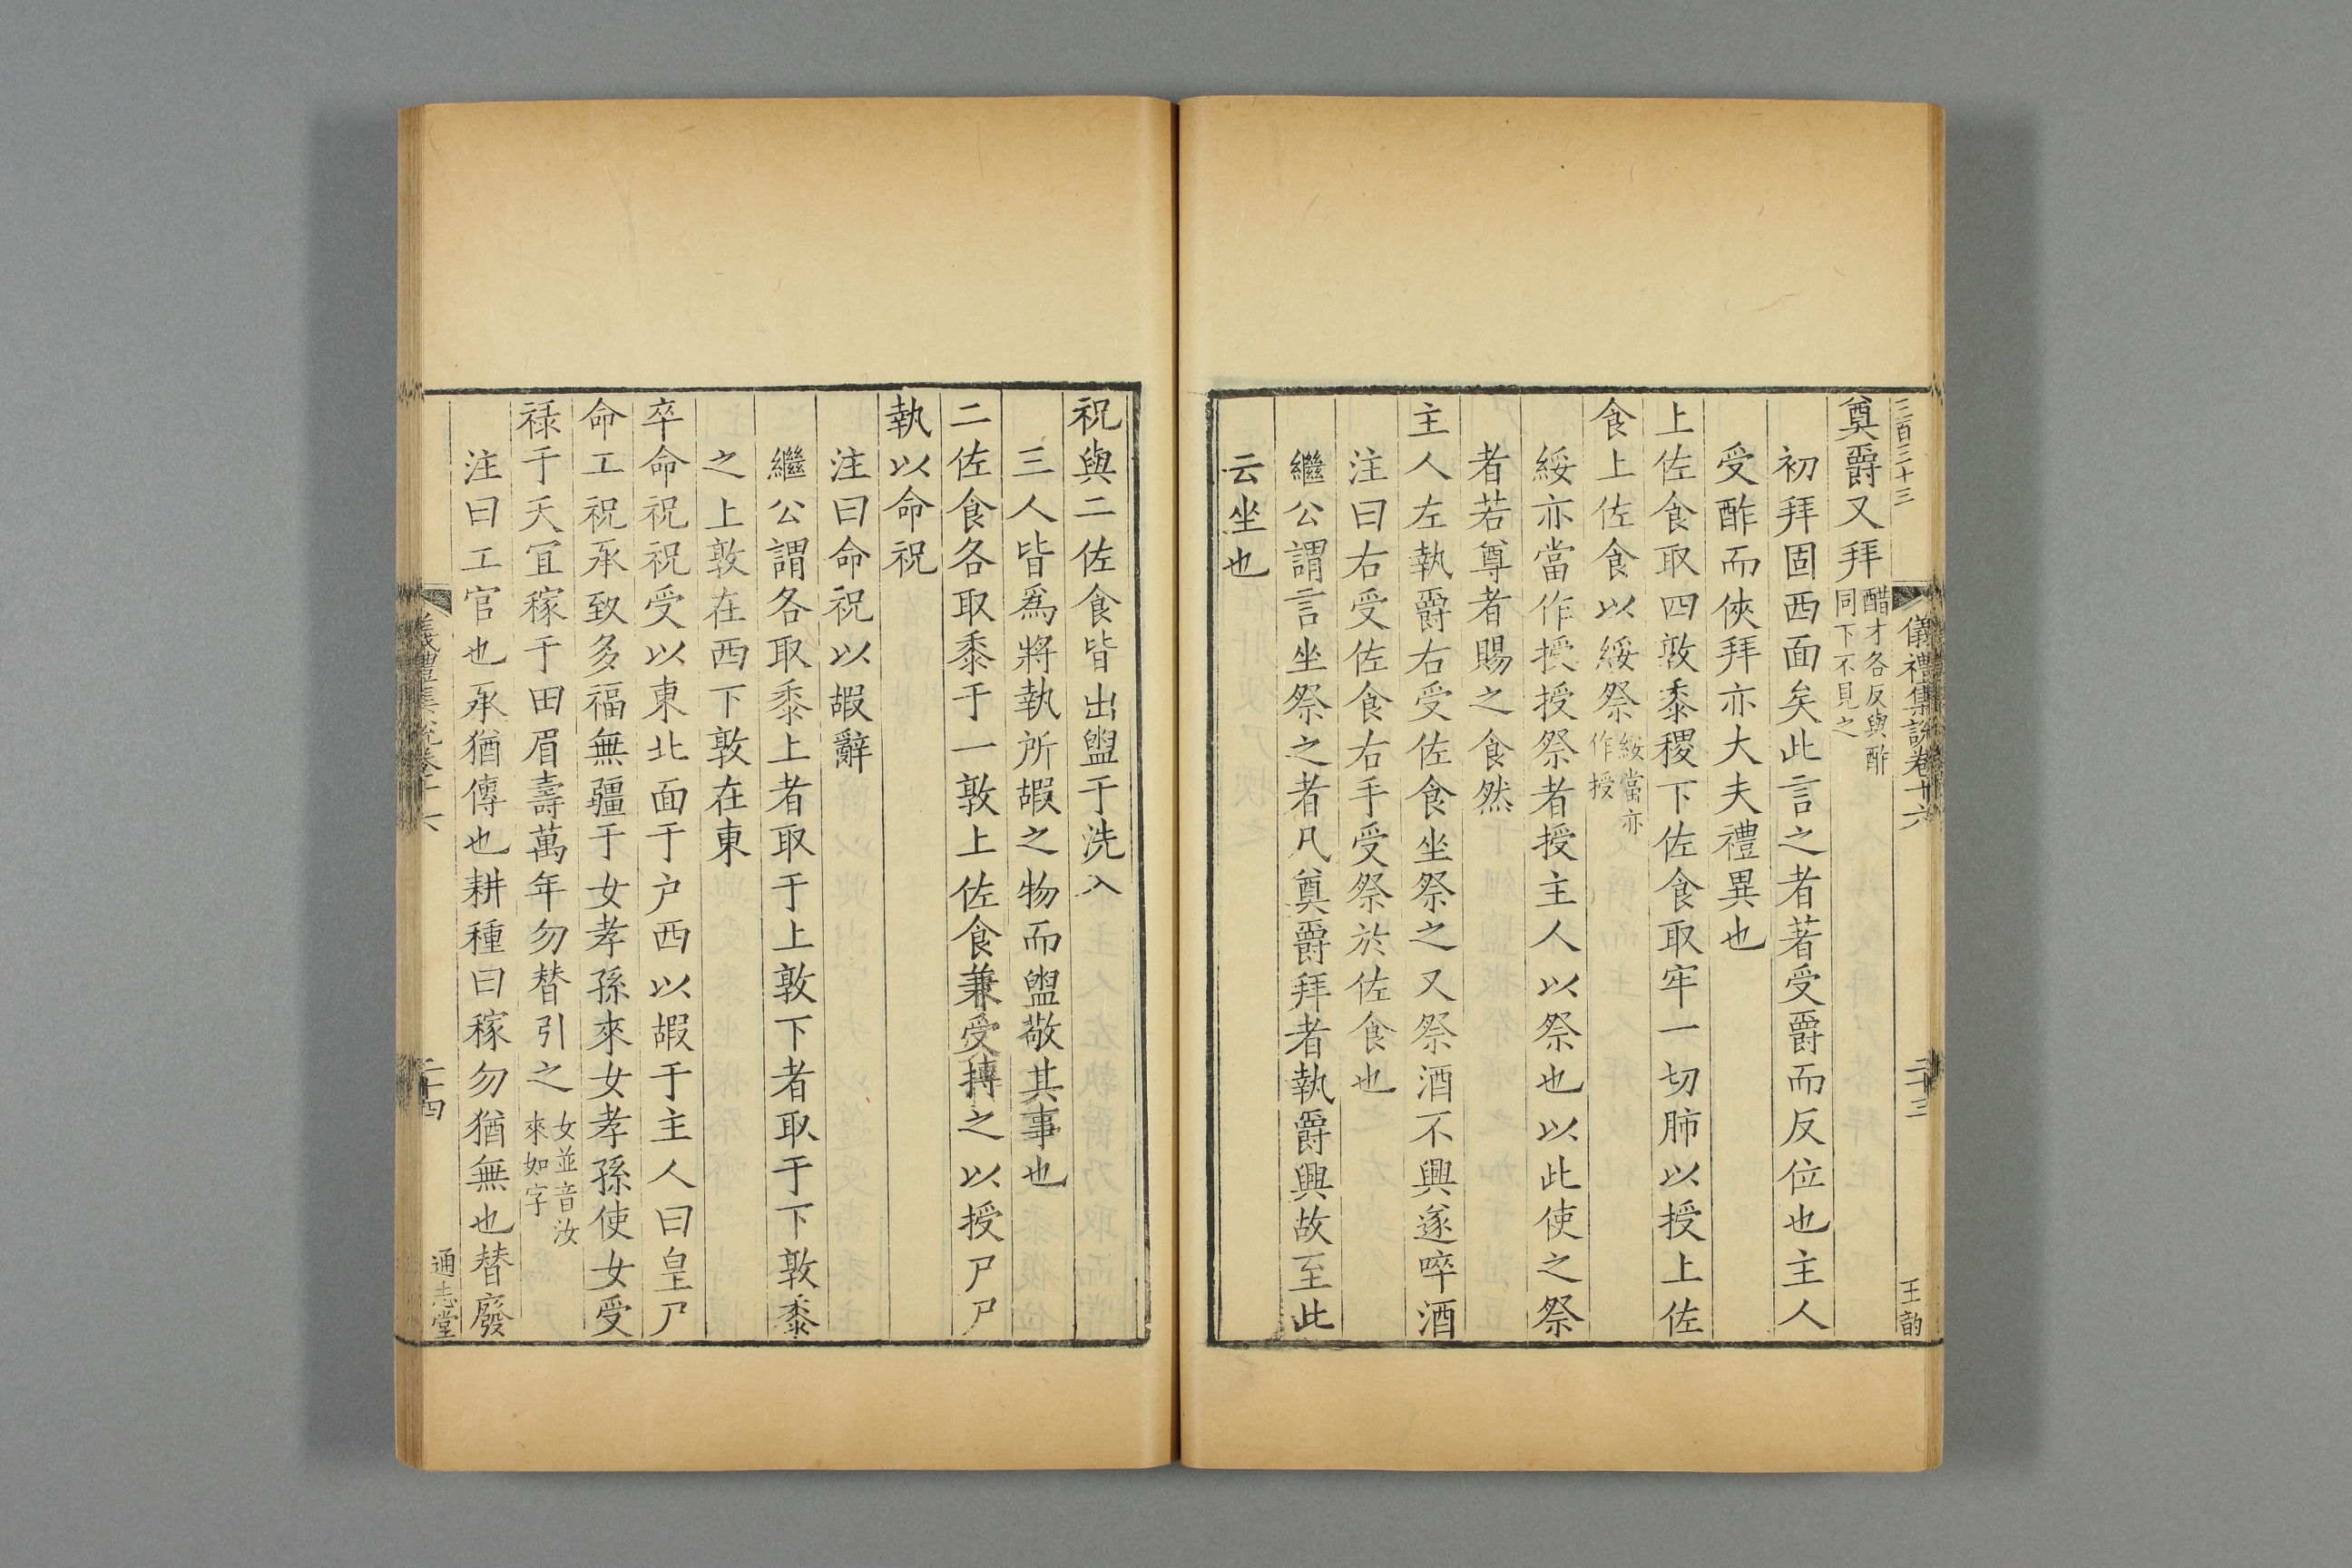 二百二十三
儀禮集說卷十六
二十三
王韵
奠爵又拜醋才各反與酢同下不見之
初拜固西面矣此言之者著受爵而反位也主人
受酢而俠拜亦大夫禮異也
上佐食取四敦黍稷下佐食取牢一切肺以授上佐
食上佐食以綏祭綏當亦作授
綏亦當作授授祭者授主人以祭也以此使之祭
者若尊者賜之食然
主人左執爵右受佐食坐祭之又祭酒不興遂啐酒
注曰右受佐食右手受祭於佐食也
繼公謂言坐祭之者凡奠爵拜者執爵興故至此
云坐也
祝與二佐食皆出盥于洗入
三人皆爲將執所嘏之物而盥敬其事也
二佐食各取黍于一敦上佐食兼受摶之以授尸尸
執以命祝
注曰命祝以嘏辭
繼公謂各取黍上者取于上敦下者取于下敦黍
之上敦在西下敦在東
卒命祝祝受以東北面于户西以嘏于主人曰皇尸
命工祝承致多福無疆于女孝孫來女孝孫使女受
祿于天宜稼于田眉壽萬年勿替引之女並音汝來如字
注曰工官也承猶傳也耕種曰稼勿猶無也替廢
儀禮集說卷十六
二十四
通志堂